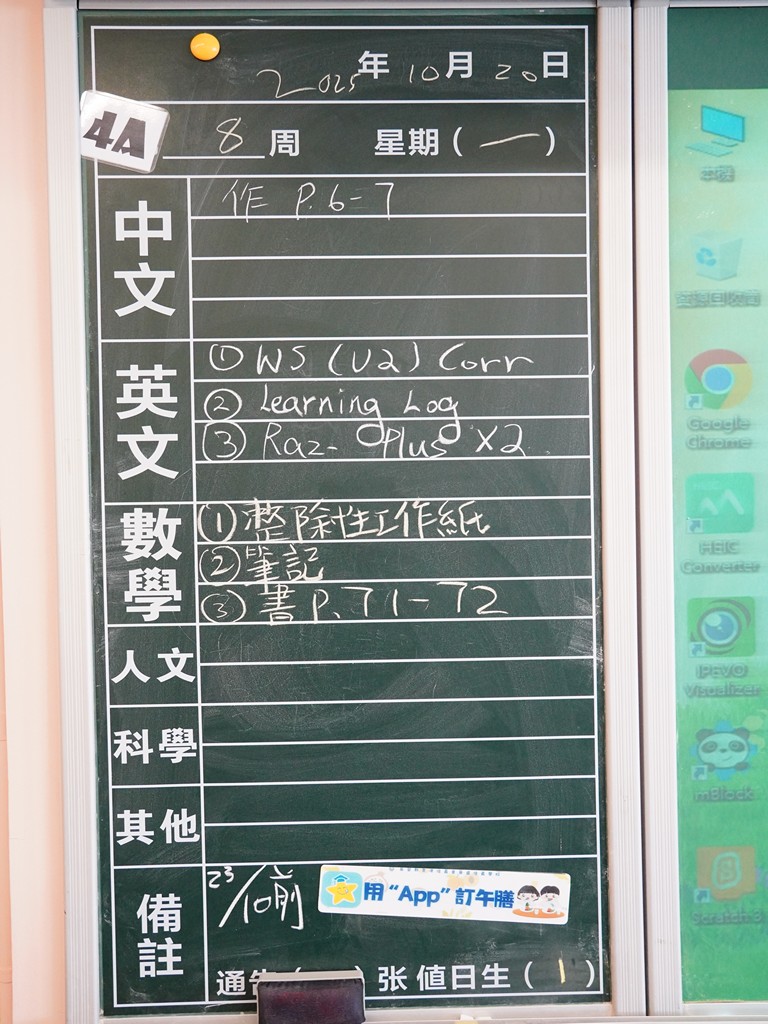 2025年10月20日
4A
8周 星期(一)
中文
作 P.6-7
英文
① WS (U2) Corr
② Learning Log
③ Raz-Plus X2
數學
①整除性工作紙
②筆記
③書P.71-72
人文
科學
其他
備註
23/10前
用“App”訂午膳
通告( 张 值日生(1)
本機
資源回收筒
Google Chrome
HEIC Converter
IPEVO Visualizer
mBlock
Scratch 3